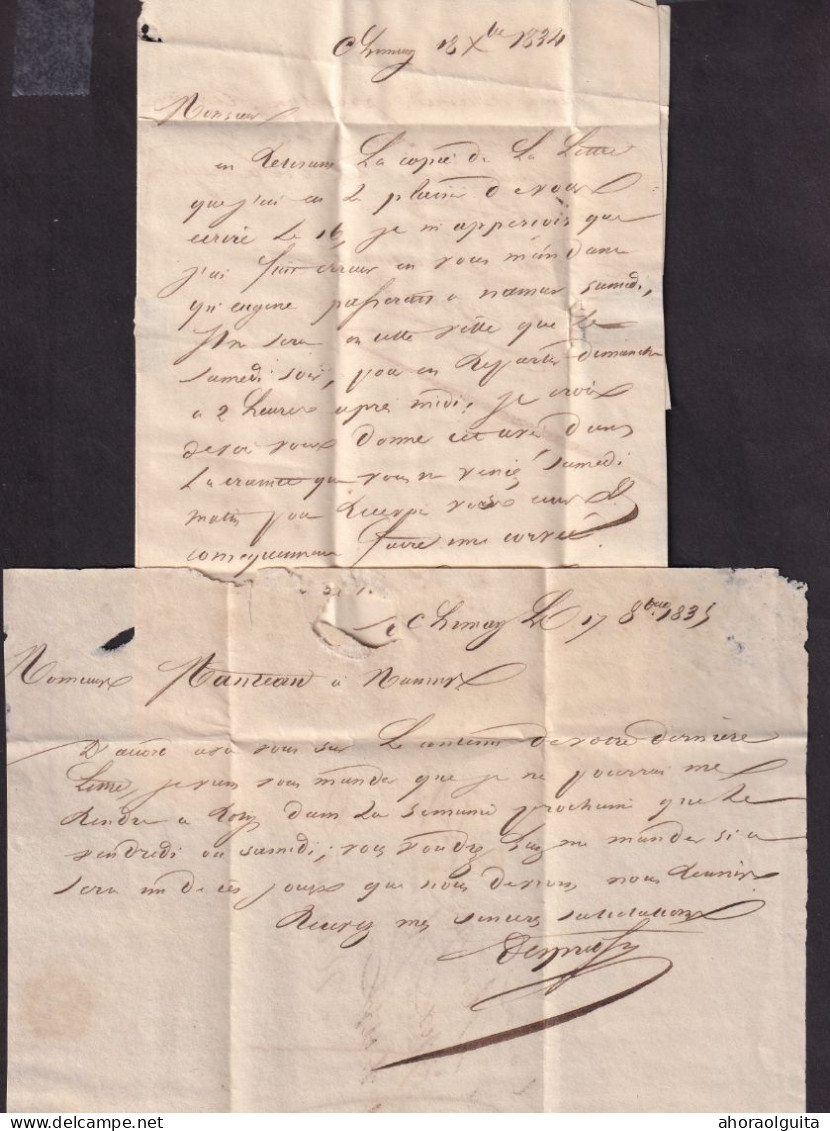 Chimay 18 Xbre 1834
Monsieur
en Relisant La copie de La Lettre
que j'ai eu Le plaisir de vous
ecrire Le 16, je m'apperçois que
j'ai fait erreur en vous mandant
qu'eugene passerait a namur samedi,
Il ne sera en cette ville que Le
samedi soir, pour en Repartir dimanche
a 2 heures apres midi, je crois
devoir vous donner cet avis dans
La crainte que vous ne veniez samedi
matin pour
consequemment faire une corvée.
Chimay Le 17 8bre 1835
Monsieur à Namur
D'accord avec vous sur Le contenu de votre dernière
Lettre, je viens vous mander que je ne pourrai me
Rendre a dans La semaine prochaine que Le
vendredi ou samedi; vous voudrez me mander si ce
sera un de ces jours que nous devrons nous Reunir.
Recevez mes sinceres salutations